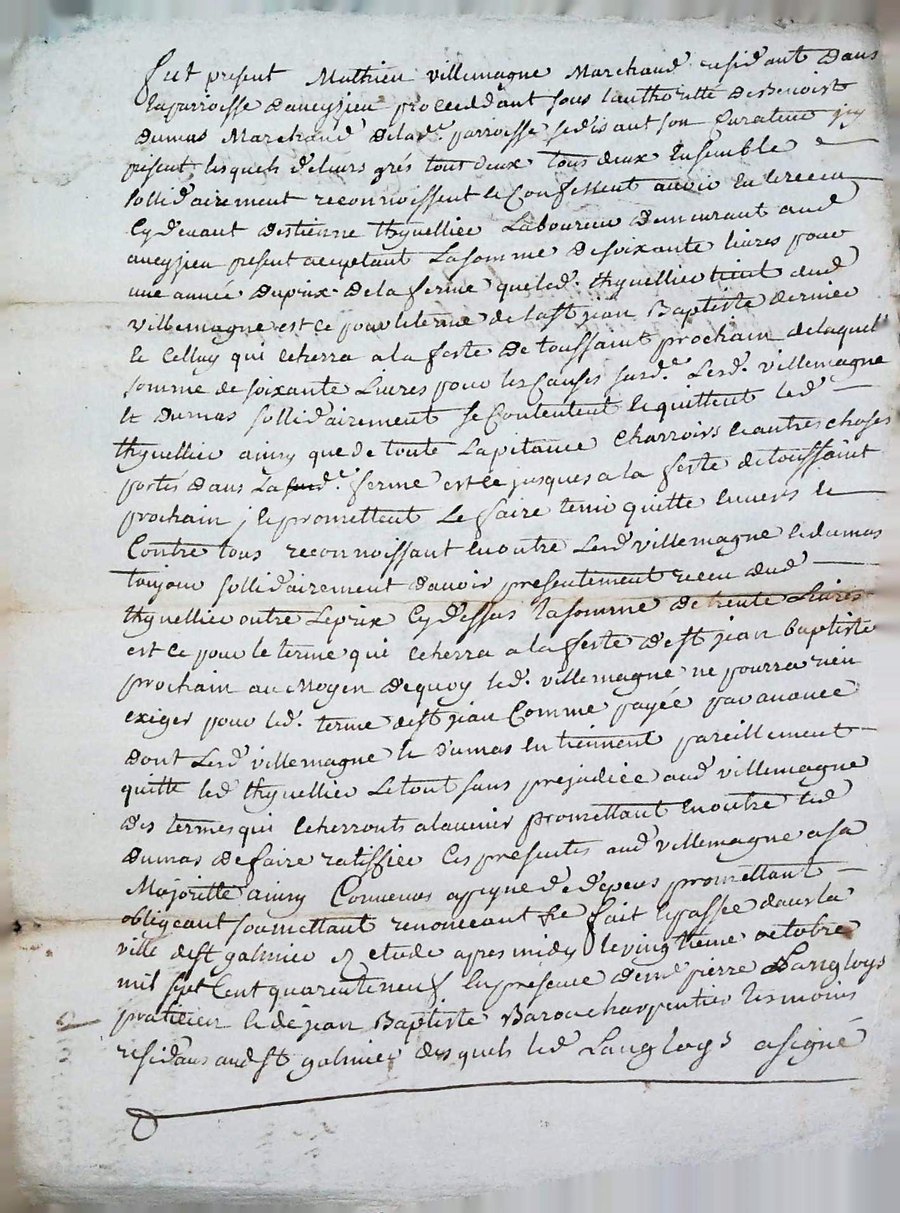 fut present Mathieu villemagne Marchand residant dans
laparroisse daveyzieu proceddant sous lauthoritté de Benoist
dumas Marchand delad.e parroisse sedisant son Curateur jcy
present, lesquels deleurs grés tous deux tous deux Ensemble et
sollidairement reconnoissent et Confessent avoir Eu et receu
Cydevant destienne thyvellier Laboureur demeurant aud
aveyzieu present acceptant La somme desoixante livres pour
une année duprix de la ferme queled. thyvellier tient dud
villemagne est ce pour le terme de la st jean Baptiste dernier
Et Celluy qui Echerra a la feste de toussaint prochain delaquelle
somme de soixante Livres pour les Causes susd.e Lesd. villemagne
Et Dumas sollidairement se Contentent Et quittent led
thyvellier ainsy que de toute Lapitance Charroirs Et autres choses
portés dans La susd.e ferme est ce jusques a la feste de toussaint
prochain, Et promettent Le faire tenir quitte Envers Et
Contre tous reconnoissant En outre Lesd villemagne Et dumas
toujour sollidairement davoir presentement receu dud
thyvellier outre Le prix Cydessus la somme de trente Livres
est ce pour le terme qui Echerra a la feste de st jean baptiste
prochain au Moyen dequoy led. villemagne ne pourra rien
exiger pour led. terme dest jean Comme payée par avance
dont Lesd villemagne Et Dumas En tiennent pareillement
quitte led thyvellier Le tout sans prejudice aud villemagne
des termes qui Echerronts alavenir promettant En outre led
dumas de faire ratiffier Ces presentes aud villemagne a sa
Majoritté ainsy Convenus a peyne de depens promettant
obligeant soumettant renonceant &c fait Et passé dans la
ville de st galmier Ez etude apres midy le vingtieme octobre
mil sept Cent quarenteneuf En presence de me pierre Langloys
praticien Et de jean Baptiste Barou charpentier tesmoins
residans aud st galmier desquels led Langloys a signé